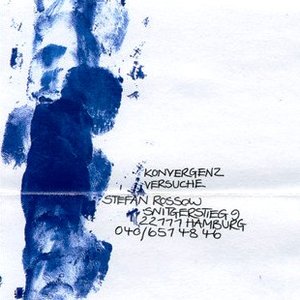 KONVERGENZ
VERSUCHE
STEFAN ROSSOW
SNITGERSTIEG 9
22111 HAMBURG
040/657 48 46